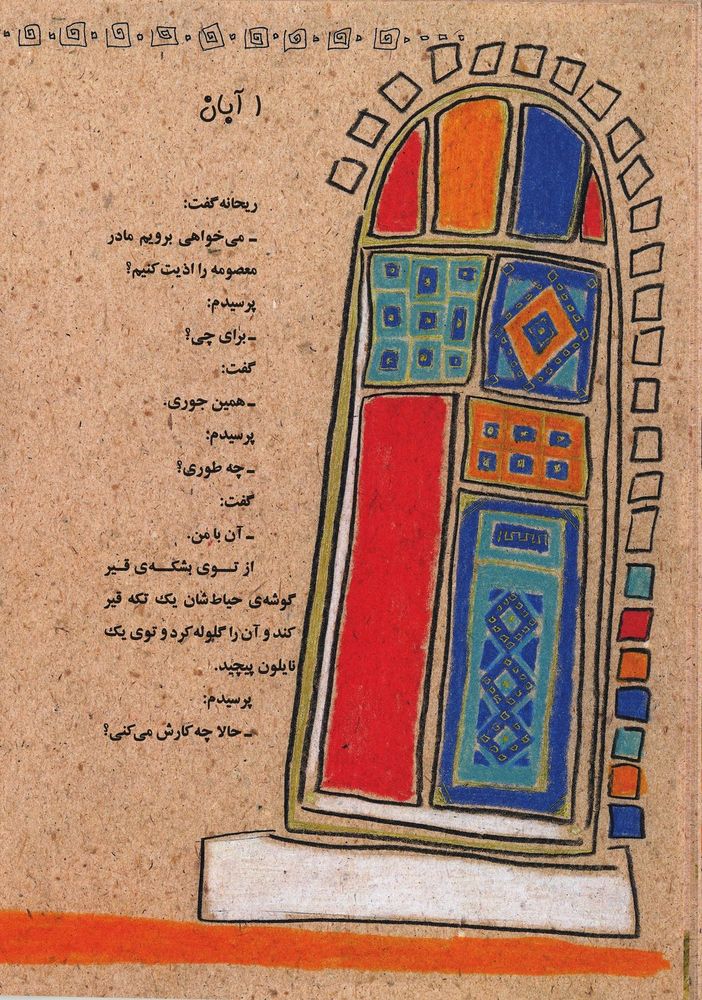 ۱ آبان
ریحانه گفت:
ـ می‌خواهی برویم مادر
معصومه را اذیت کنیم؟
پرسیدم:
ـ برای چی؟
گفت:
ـ همین جوری.
پرسیدم:
ـ چه طوری؟
گفت:
ـ آن با من.
از توی بشکه‌ی قیر
گوشه‌ی حیاط‌شان یک تکه قیر
کند و آن را گلوله کرد و توی یک
نایلون پیچید.
پرسیدم:
ـ حالا چه کارش می‌کنی؟